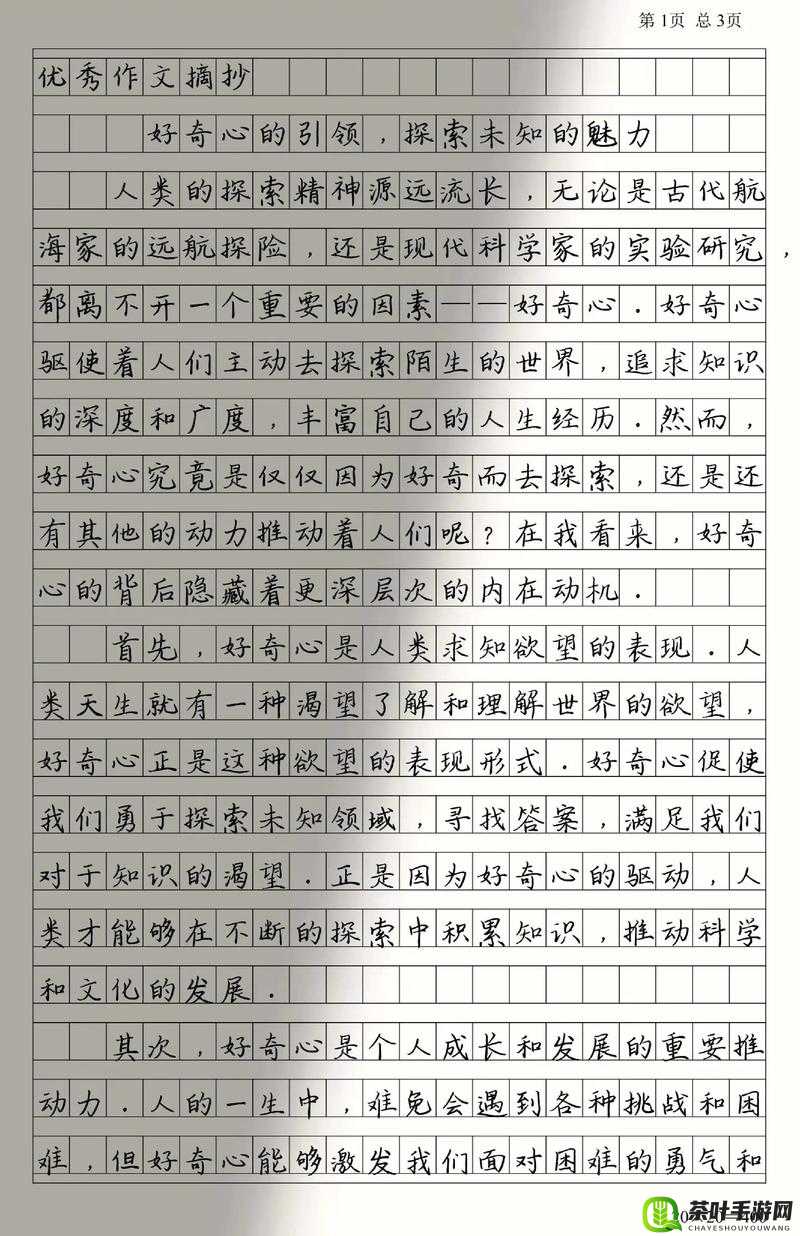 第 1页 总 3页
优秀作文摘抄
好奇心的引领，探索未知的魅力
人类的探索精神源远流长，无论是古代航
海家的远航探险，还是现代科学家的实验研究，
都离不开一个重要的因素——好奇心．好奇心
驱使着人们主动去探索陌生的世界，追求知识
的深度和广度，丰富自己的人生经历．然而，
好奇心究竟是仅仅因为好奇而去探索，还是还
有其他的动力推动着人们呢？在我看来，好奇
心的背后隐藏着更深层次的内在动机．
首先，好奇心是人类求知欲望的表现．人
类天生就有一种渴望了解和理解世界的欲望，
好奇心正是这种欲望的表现形式．好奇心促使
我们勇于探索未知领域，寻找答案，满足我们
对于知识的渴望．正是因为好奇心的驱动，人
类才能够在不断的探索中积累知识，推动科学
和文化的发展．
其次，好奇心是个人成长和发展的重要推
动力．人的一生中，难免会遇到各种挑战和困
难，但好奇心能够激发我们面对困难的勇气和
茶叶手游网
CHAYESHOUYOUWANG